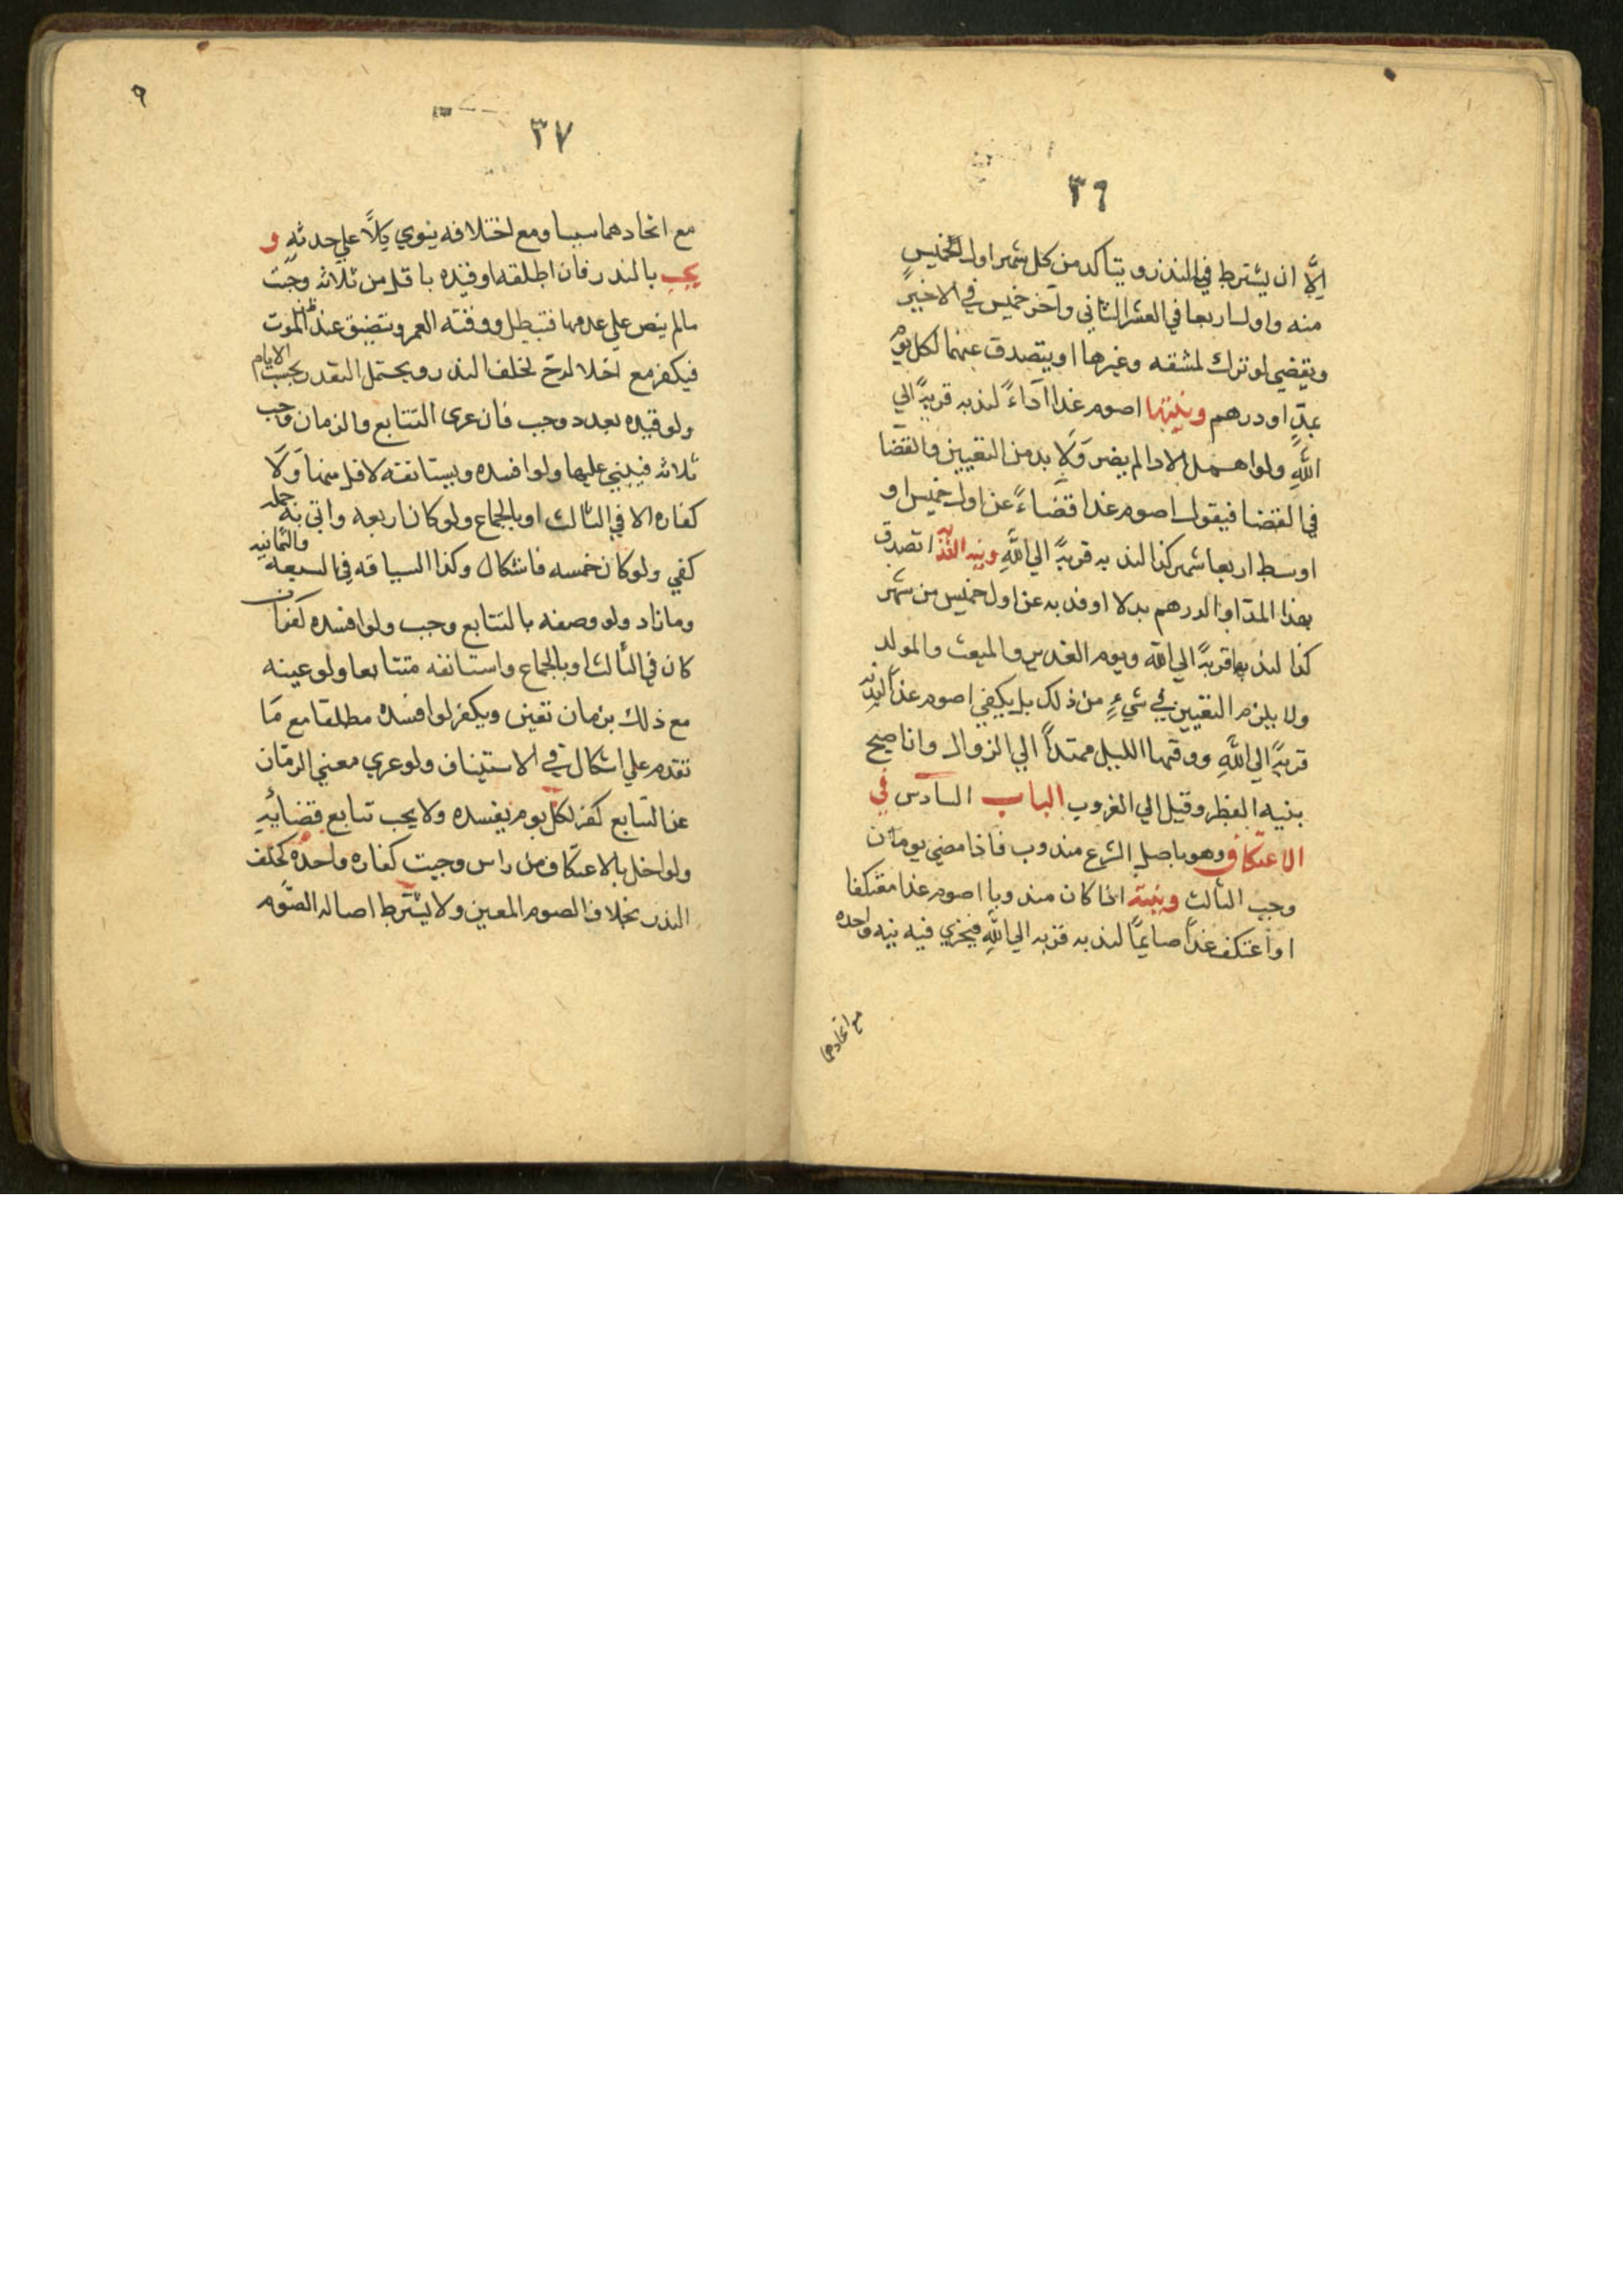 ٣٦
إلَّا ان يشترط في النذر ويتأكد من كل شهر اول الخميس
منه واول اربعا في العشر الثاني وآخر خميس في الاخير
ويقضي لو ترك لمشقه وغيرها او يتصدق عنهما لكل يوم
بمدٍّ او درهم ونيتها اصوم غدا آداءً لندبه قربةً الي
اللهِ ولو اهمل الادا لم يضر ولا بد من التعيين والقضا
في القضا فيقول اصوم غدا قضاءً عن اول خميس او
اوسط اربعا شهر كذا لندبه قربةً الي اللهِ ونيه الفديه اتصدق
بهذا المد او الدرهم بدلا او فديه عن اول خميس من شهر
كذا لندبها قربةً الي الله ويوم الغدير والمبعث والمولد
ولا يلزم التعيين في شيءٍ من ذلك بل يكفي اصوم غداً لندبه
قربةً الي اللهِ ووقتها الليل ممتداً الي الزوال وانا صبح
بنيه الفطر وقيل الي الغروب الباب السادس في
الاعتكاف وهو باصل الشرع مندوب فاذا مضي يومان
وجب الثالث ونيته اذا كان مندوبا اصوم غدا معتكفا
او اعتكف غداً صايماً لندبه قربه الي اللهِ فيجزي فيه نيه واحده
مع اتحادهما
٩
٣٧
مع اتحادهما سببا ومع اختلافه ينوي كلاً علي حدته و
يجب بالنذر فان اطلقه او قيده باقل من ثلاثه وجبت
مالم ينص علي عدمها فتبطل ووقته العمر ويتضيق عند ظن الموت
فيكفر مع اخلاله ح لخلف النذر ويحتمل التعدد بحسب الايام
ولو قيده بعدد وجب فان عري التتابع والزمان وجب
ثلاثه فيبني عليها ولو افسده ويستانفه لاقل منها ولا
كفاره الا في الثالث او بالجماع ولو كان اربعه واتي به جمله
كفي ولو كان خمسه فاشكال وكذا السياقه في السبعه والثمانيه
وما زاد ولو وصفه بالتتابع وجب ولو افسده كفر ان
كان في الثالث او بالجماع واستانفه متتابعا ولو عينه
مع ذلك بزمان تعين ويكفر لو افسده مطلقا مع ما
تقدم علي اشكال في الاستيناف ولو عري معني الزمان
عن التتابع كفر لكل يوم يفسده ولا يجب تتابع قضائه
ولو اخل بالاعتكاف من راس وجبت كفاره واحده كخلف
النذر بخلاف الصوم المعين ولا يشترط اصاله الصوم